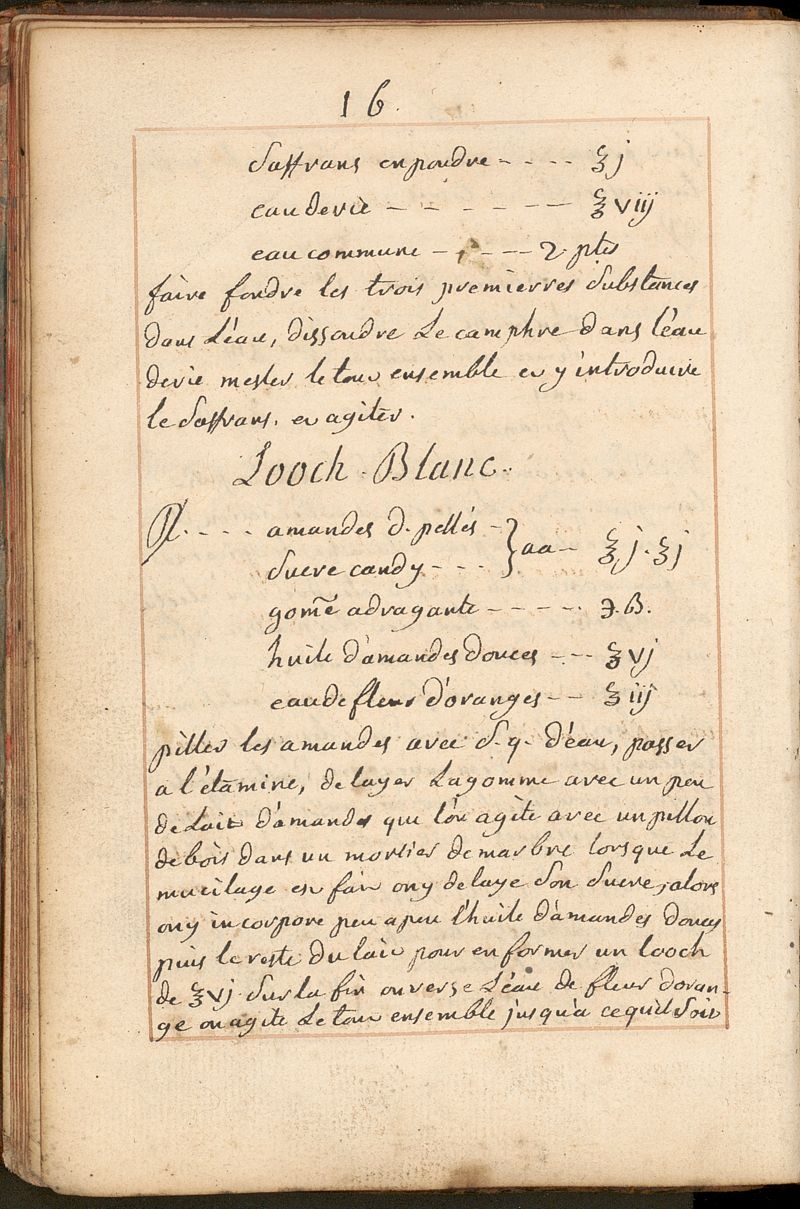 16.
Saffrans en poudre - - - - ℥ j
eau de vie - - - - - - ℥ viij
eau commune - - - - 2. ptes
faire fondre les trois premierres Substances
dans L'éau, dissoudre Le camphre dans l'éau
de vie mesler le tout ensemble et y introduire
le Saffrans. et agiter.
Looch Blanc.
℞. - - - amandes d. pellés -
Sucre candy - - - } aa - ℥ j. ℥ j
gom̃e adragante - - - - - ℈. ß.
huile d'amandes douces - - - ℥ vj
eau de fleur d'oranges - - ℥ iij
piller les amandes avec S. q. d'éau, passer
a l'étamine, delayer La gomme avec un peu
de Lait d'amandes que l'on agite avec un pillon
de bois dans un mortier de marbre lorsque Le
mucilage est fait on y delaye Son Sucre, alors
on y incorpore peu a peu l'huile d'amandes douces
puis le reste du lait pour en former un looch
de ℥ vj. Sur la fin on verse L'éau de fleur doran-
ge on agite Le tout ensemble jusqu'a ce quil Soit